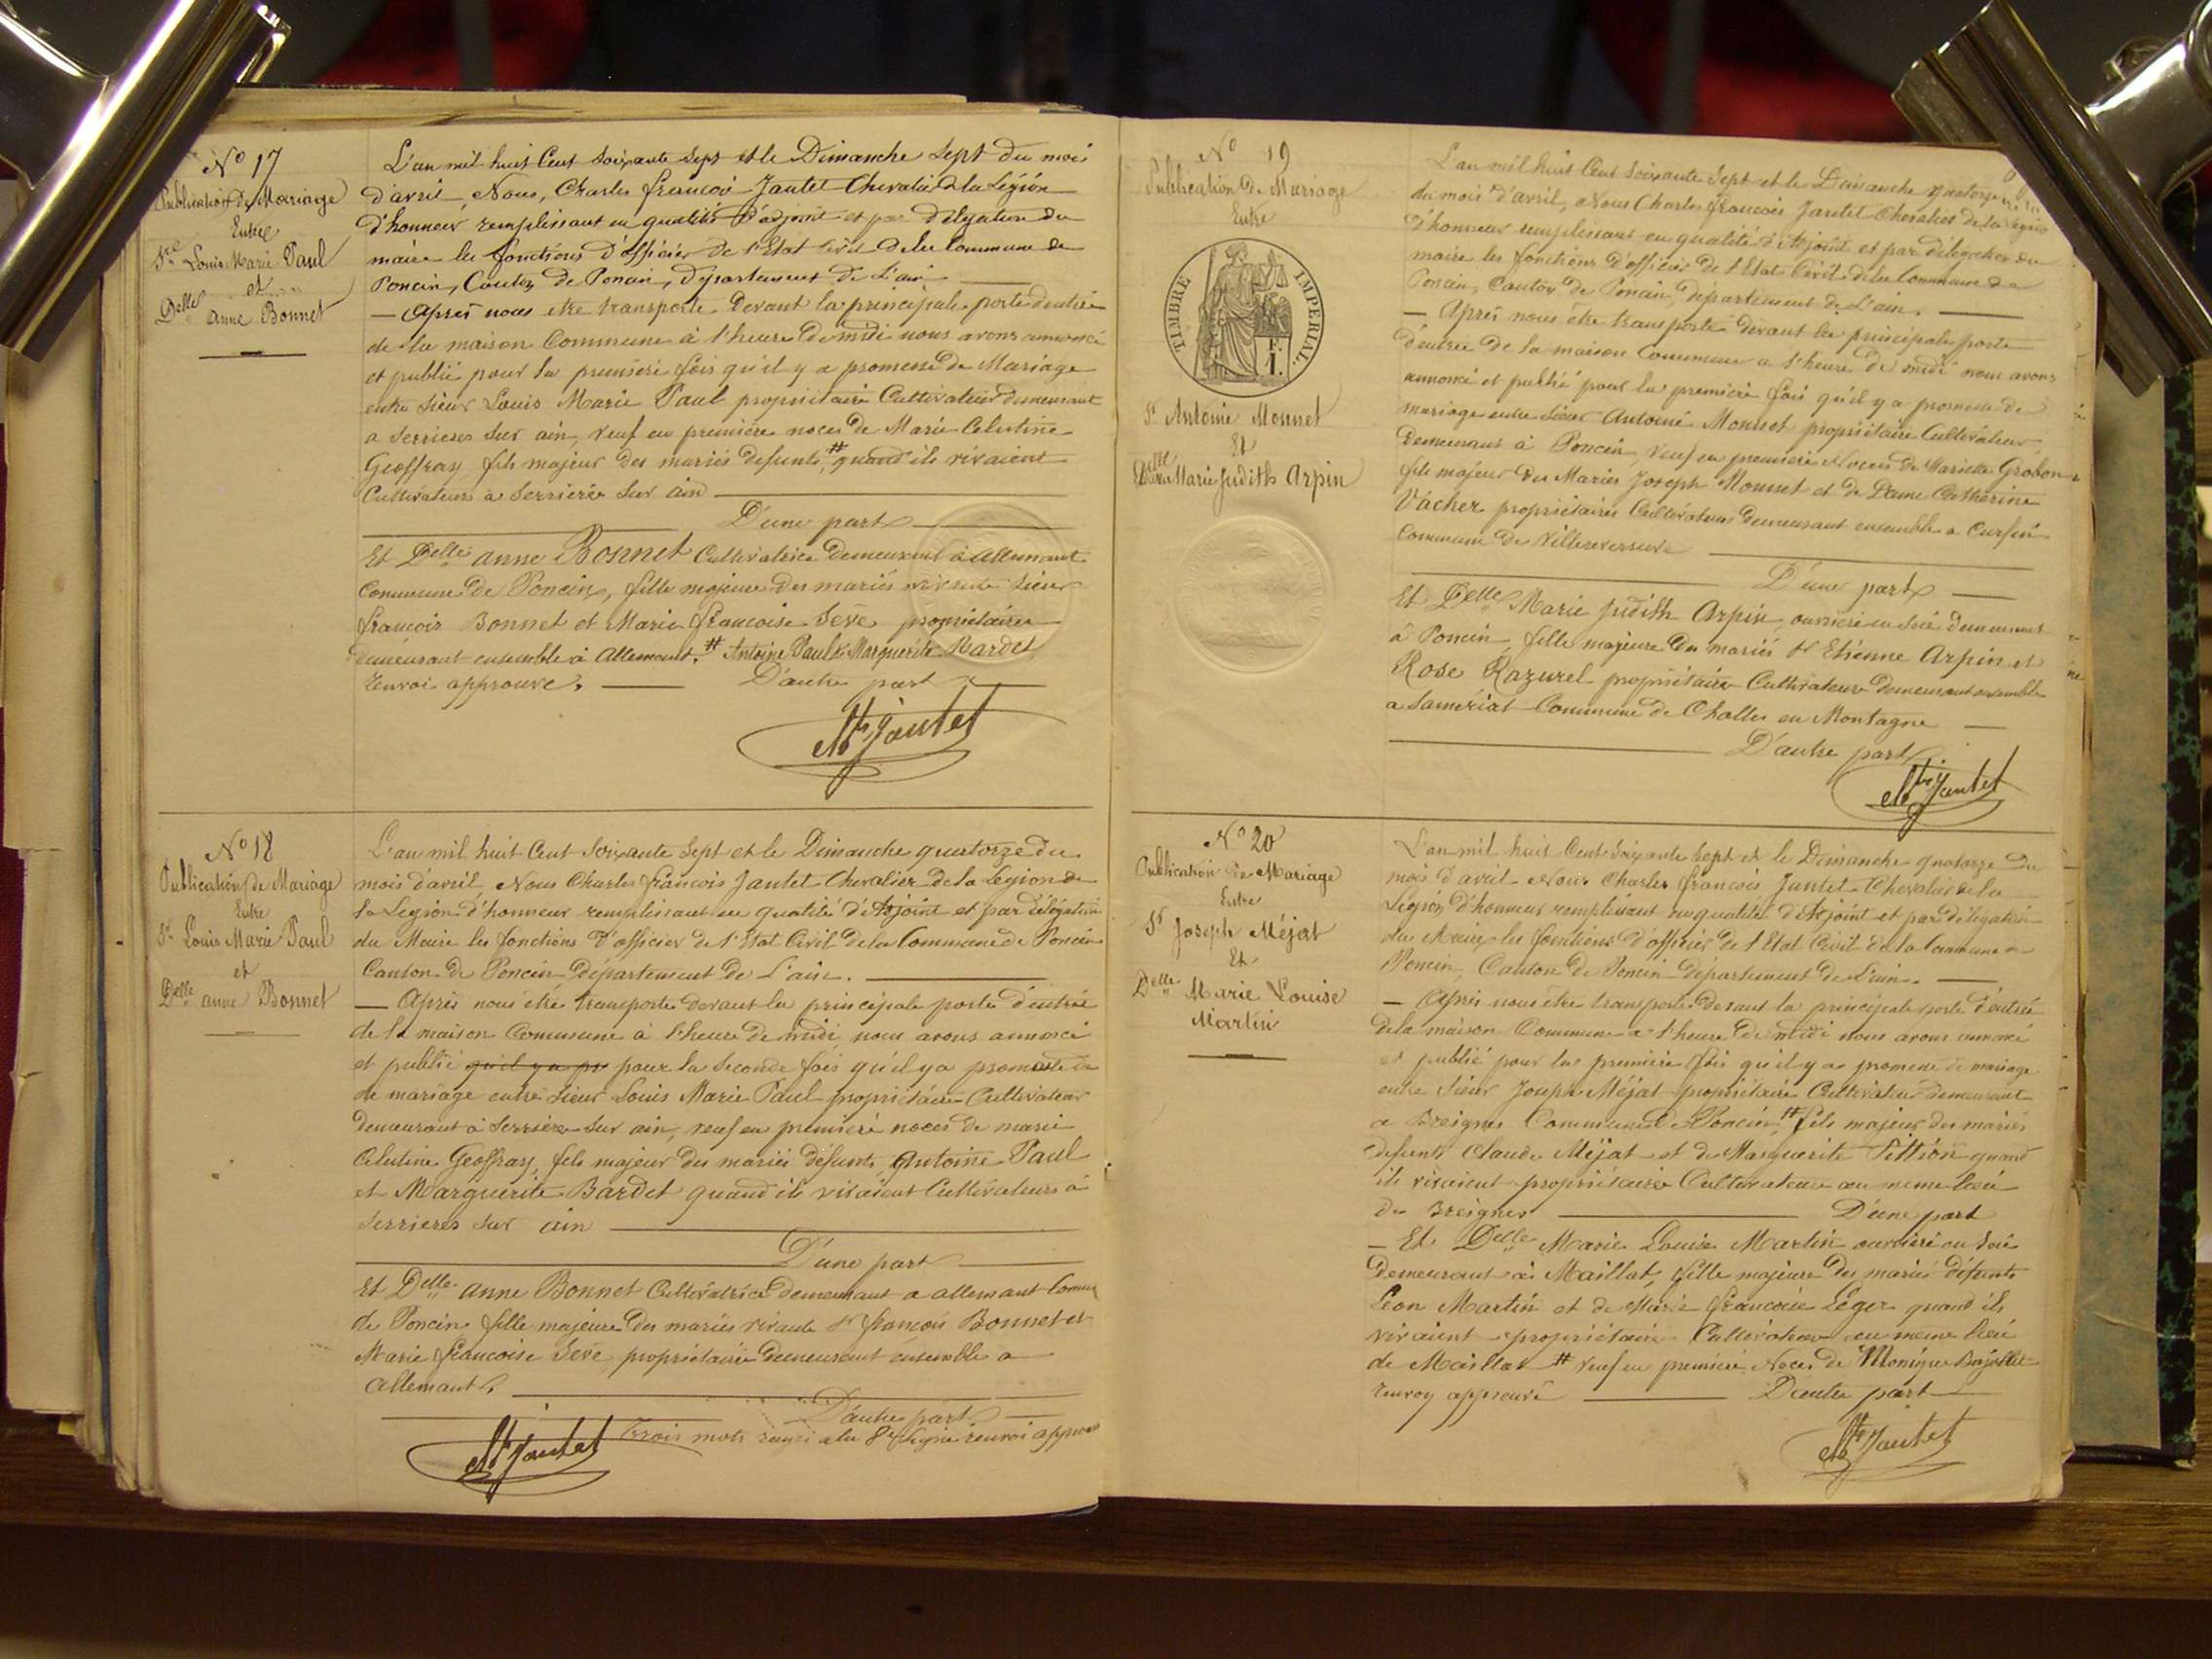 N° 17
Publication de Mariage
Entre
Sr Louis Marie Paul
et
Delle anne Bonnet
L'an mil huit Cent Soixante Sept et le Dimanche Sept du mois
d'avril, Nous, Charles francois Jantet Chevalier de la Légion
d'honneur remplissant en qualité d'adjoint et par délégation du
maire les fonctions d'officier de l'Etat Civil de la Commune de
Poncin, Canton de Poncin, département de L'ain
— Après nous etre transporté devant la principale porte d'entrée
de la maison Commune à l'heure de midi nous avons annoncé
et publié pour la première fois qu'il y a promesse de Mariage
entre Sieur Louis Marie Paul propriétaire Cultivateur demeurant
a Serrieres Sur ain, Veuf en première noces de Marie Celestine
Geoffray fils majeur des mariés defunts, # quand ils vivaient
Cultivateurs a Serrieres Sur ain
D'une part
Et Delle anne Bonnet Cultivatrice demeurant à allemant
Commune de Poncin, fille majeure des mariés vivants Sieur
francois Bonnet et Marie francoise Sève propriétaires
demeurant ensemble à Allemant. # Antoine Paul & Marguerite Bardet
renvoi approuvé. D'autre part
Ch Jantet
N° 18
Publication de Mariage
Entre
Sr Louis Marie Paul
et
Delle anne Bonnet
L'an mil huit Cent Soixante Sept et le Dimanche quatorze du
mois d'avril, Nous Charles francois Jantet Chevalier de la Légion de
la Legion d'honneur remplissant en qualité d'Adjoint et par délégation
du Maire les fonctions d'officier de l'Etat Civil de la Commune de Poncin
Canton de Poncin département de L'ain.
— Après nous être transporté devant la principale porte d'entrée
de la maison Commune à l'heure de midi nous avons annoncé
et publié qu'il y a pr pour la Seconde fois qu'il y a promesse de
de mariage entre Sieur Louis Marie Paul propriétaire Cultivateur
demeurant à Serrieres Sur ain, veuf en première noces de marie
Celestine Geoffray, fils majeur des mariés défunts Antoine Paul
et Marguerite Bardet quand ils vivaient Cultivateurs à
Serrieres Sur ain
D'une part
Et Delle anne Bonnet Cultivatrice demeurant a allemant Comme
de Poncin fille majeure des mariés vivants Sr francois Bonnet et
Marie francoise Sève propriétaires demeurant ensemble a
allemant.
D'autre part
Trois mots rayés a la 8e ligne renvoi approuvé
Ch Jantet
N° 19
Publication de Mariage
Entre
TIMBRE IMPERIAL
1 F.
Sr Antoine Monnet
Et
Delle Marie Judith Arpin
L'an mil huit Cent Soixante Sept et le Dimanche quatorze
du mois d'avril, Nous Charles francois Jantet Chevalier de la Légion
d'honneur remplissant en qualité d'Adjoint et par délégation du
maire les fonctions d'officier de l'Etat Civil de la Commune de
Poncin, Canton de Poncin, département de L'ain.
— Après nous être transporté devant la principale porte
d'entrée de la maison Commune a l'heure de midi nous avons
annoncé et publié pour la première fois qu'il y a promesse de
mariage entre Sieur Antoine Monnet propriétaire Cultivateur
demeurant à Poncin, Veuf en première Noces de Mariette Grobon
fils majeur des Mariés Joseph Monnet et de Dame Catherine
Vacher propriétaires Cultivateurs demeurant ensemble a
Commune de Villereversure
D'une part
Et Delle Marie Judith Arpin, ouvrière en Soie demeurant
à Poncin fille majeure des mariés Sr Etienne Arpin et
Rose Razurel propriétaires Cultivateurs demeurant ensemble
a Samériat Commune de Challes en Montagne
D'autre part
Ch Jantet
N° 20
Publication de Mariage
Entre
Sr Joseph Méjat
Et
Delle Marie Louise
Martin
L'an mil huit Cent Soixante Sept et le Dimanche quatorze du
mois d'avril Nous Charles francois Jantet Chevalier de la
Légion d'honneur remplissant en qualité d'Adjoint et par délégation
du Maire les fonctions d'officier de l'Etat Civil de la Commune de
Poncin, Canton de Poncin département de L'ain.
— Après nous être transporté devant la principale porte d'entrée
de la maison Commune a l'heure de midi nous avons annoncé
et publié pour la première fois qu'il y a promesse de mariage
entre Sieur Joseph Méjat propriétaire Cultivateur demeurant
a Breignes Commune de Poncin, # fils majeur des mariés
defunts Claude Méjat et de Marguerite Pittion quand
ils vivaient propriétaires Cultivateurs au même lieu
de Breignes D'une part
— Et Delle Marie Louise Martin ouvrière en Soie
demeurant à Maillat, fille majeure des mariés défunts
Léon Martin et de Marie francoise Léger quand ils
vivaient propriétaires Cultivateurs au même lieu
de Maillat # Veuf en première Noces de Monique Bajollet
renvoy approuvé D'autre part
Ch Jantet